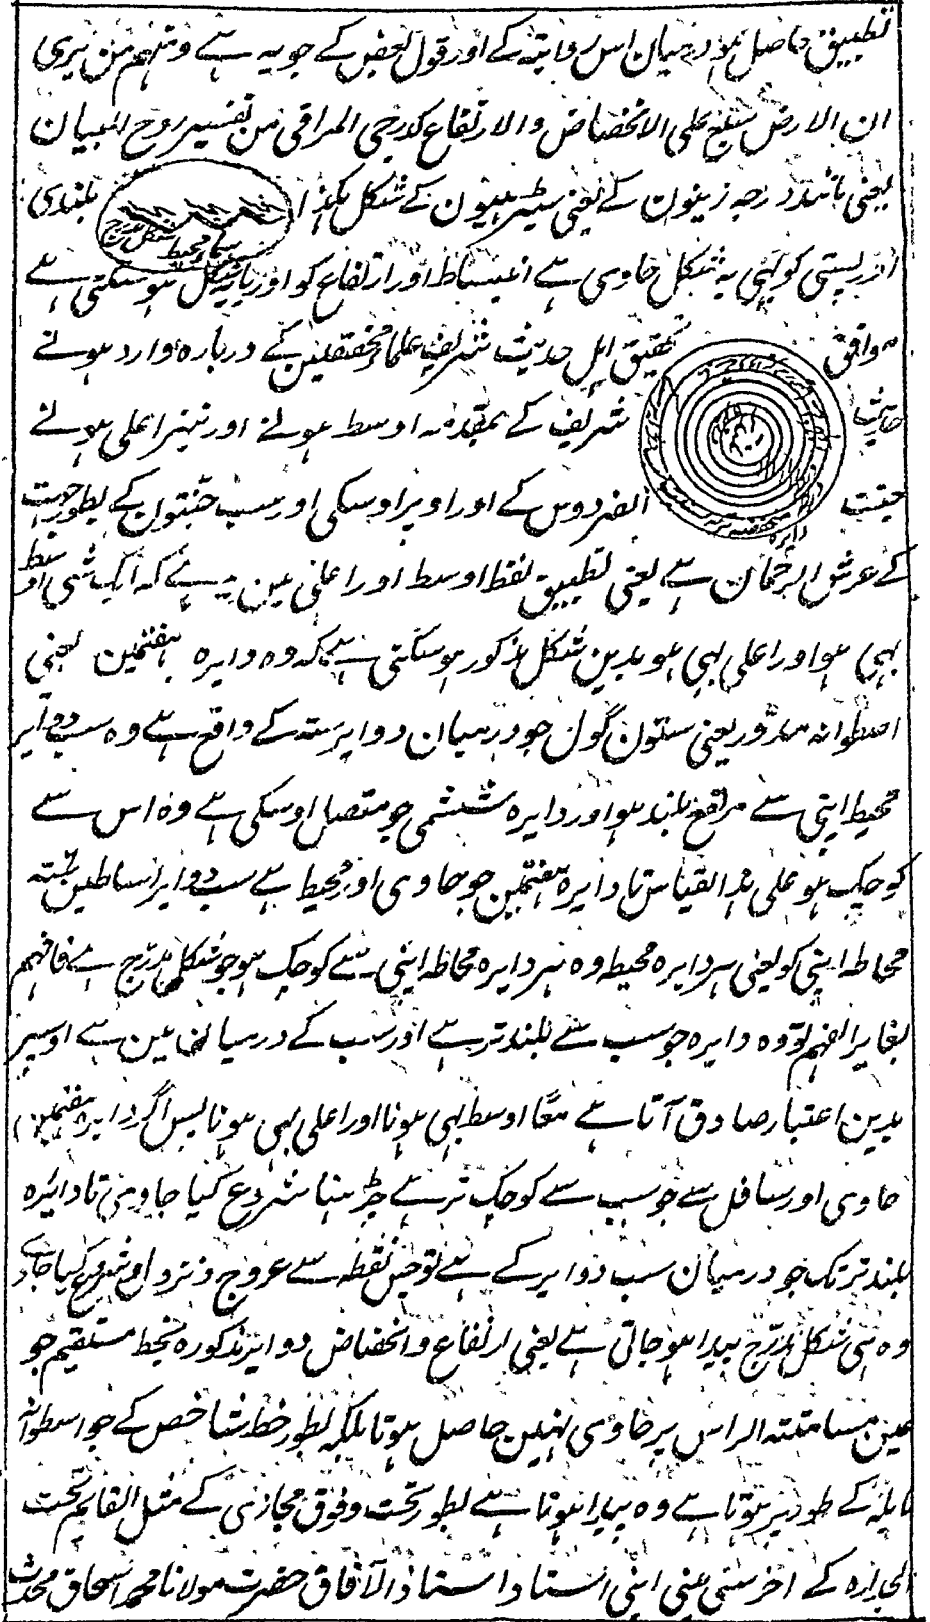 تطبیق حاصل ہو درمیان اس روایتہ کے اور قول بعض کے جو یہ ہے ومنہم من یری
ان الارض سبع علی الانخفاض والارتفاع کدرجی المراقی من تفسیر روح البیان
یعنی مانند درجہ زینون کے یعنی سیڑہیون کے شکل ہکذا بلندی
اور پستی کو بہی یہ شکل حاوی ہے انبساط اور ارتفاع کو اور یا یہ شکل ہو سکتی ہے
موافق تحقیق اہل حدیث شریف علماء محققین کے دربارہ وارد ہونے
حدیث شریف کے بمقدمہ اوسط ہونے اور نیز اعلی ہونے
جنت الفردوس کے اور اوپر اوسکی اور سب جنتون کے بطور چہت
کے عرش الرحمان ہے یعنی تطبیق لفظ اوسط اور اعلی مین یہ ہے کہ ایک شی اوسط
بہی ہو اور اعلی بہی ہو بدین شکل مذکور ہو سکتی ہے کہ وہ دایرہ ہفتمین یعنی
اسطوانہ مدور یعنی ستون گول جو درمیان دوایر ستہ کے واقع ہے وہ سب دوایر
محیط اپنی سے مرتفع بلند ہو اور دایرہ ششمی جو متصل اوسکی ہے وہ اس سے
کوچک ہو علی ہذا القیاس تا دایرہ ہفتمین جو حاوی اور محیط ہے سب دوایر اساطین ستہ
محاطہ اپنی کو یعنی ہر دایرہ محیطہ وہ ہر دایرہ محاطہ اپنی سے کوچک ہو جو شکل مدرج ہے فافہم
بغایر الفہم تو وہ دایرہ جو سب سے بلند تر ہے اور سب کے درمیان مین ہے اوسپر
بدین اعتبار صادق آتا ہے معًا اوسط بہی ہونا اور اعلی بہی ہونا پس اگر دایرہ ہفتمین
حاوی اور سافل سے جو سب سے کوچک تر ہے چڑہنا شروع کیا جاوی تا دائرہ
بلند تر تک جو درمیان سب دوایر کے ہے تو جس نقطہ سے عروج و نزول شروع کیا جاوے
وہ ہی شکل مدرج پیدا ہو جاتی ہے یعنی ارتفاع و انخفاض دوایر مذکورہ بخط مستقیم جو
عین مسامتتہ الراس پر حاوی نہین حاصل ہوتا بلکہ بطور خط شاخص کے جو اسطوانہ
مایلہ کے طور پر ہوتا ہے وہ پیدا ہوتا ہے بطور تحت و فوق مجازی کے مثل القایم تحت
الجدارہ کے اخر سنی عنی اپنی استاد استاذ الآفاق حضرت مولانا محمد اسحاق محدث